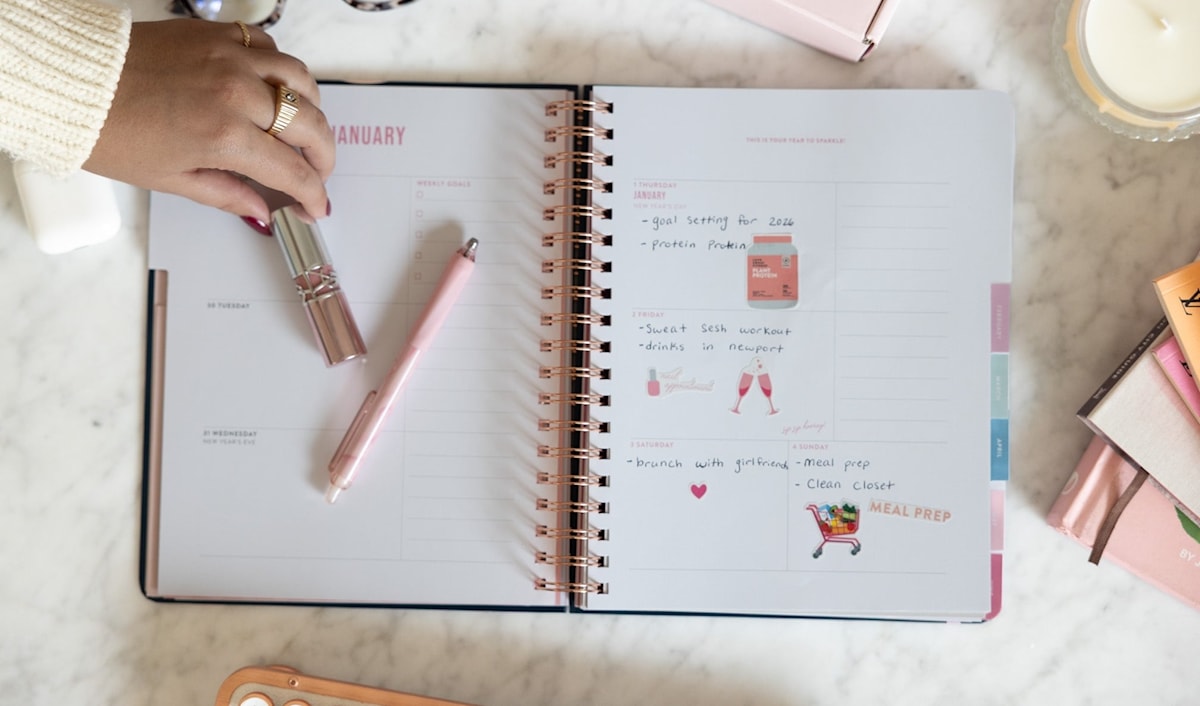 JANUARY
WEEKLY GOALS
30 TUESDAY
31 WEDNESDAY
NEW YEAR'S EVE
THIS IS YOUR YEAR TO SPARKLE!
1 THURSDAY
JANUARY
NEW YEAR'S EVE
- goal setting for 2026
- protein protein
PLANT
PROTEIN
2 FRIDAY
- Sweat sesh workout
- drinks in newport
nail
appointment
3 SATURDAY
- brunch with girlfriends
4 SUNDAY
- Meal prep
- Clean Closet
MEAL PREP
FEBRUARY
MARCH
APRIL